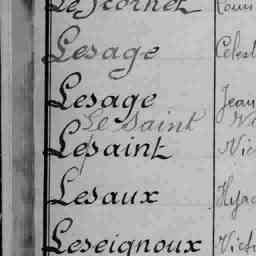 Le Scornet Louis
Lesage Célest
Lesage Jean
Le Saint
Lesaint Vic
Lesaux Hya
Leseignoux Victo